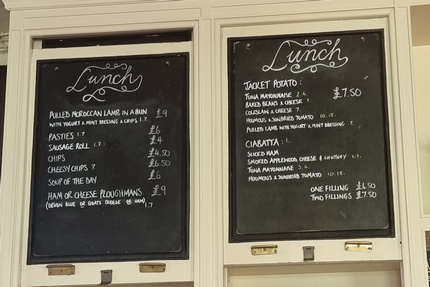 Lunch
PULLED MOROCCAN LAMB IN A BUN £9
WITH YOGURT & MINT DRESSING & CHIPS 1.7
PASTIES 1.7 £6
SAUSAGE ROLL 1.7 £4
CHIPS £4.50
CHEESY CHIPS 7 £6.50
SOUP OF THE DAY £6
HAM OR CHEESE PLOUGHMANS £9
(DEVON BLUE OR GOATS CHEESE OR HAM) 1.7
Lunch
JACKET POTATO:
TUNA MAYONNAISE 3.4. £7.50
BAKED BEANS & CHEESE 7.
COLESLAW & CHEESE 7.
HOUMOUS & SUNDRIED TOMATO 10.15.
PULLED LAMB WITH YOGURT & MINT DRESSING 7.
CIABATTA: 1.
SLICED HAM
SMOKED APPLEWOOD CHEESE & CHUTNEY 1.7.
TUNA MAYONNAISE 3.4
HOUMOUS & SUNDRIED TOMATO 10.15.
ONE FILLING £6.50
TWO FILLINGS £7.50